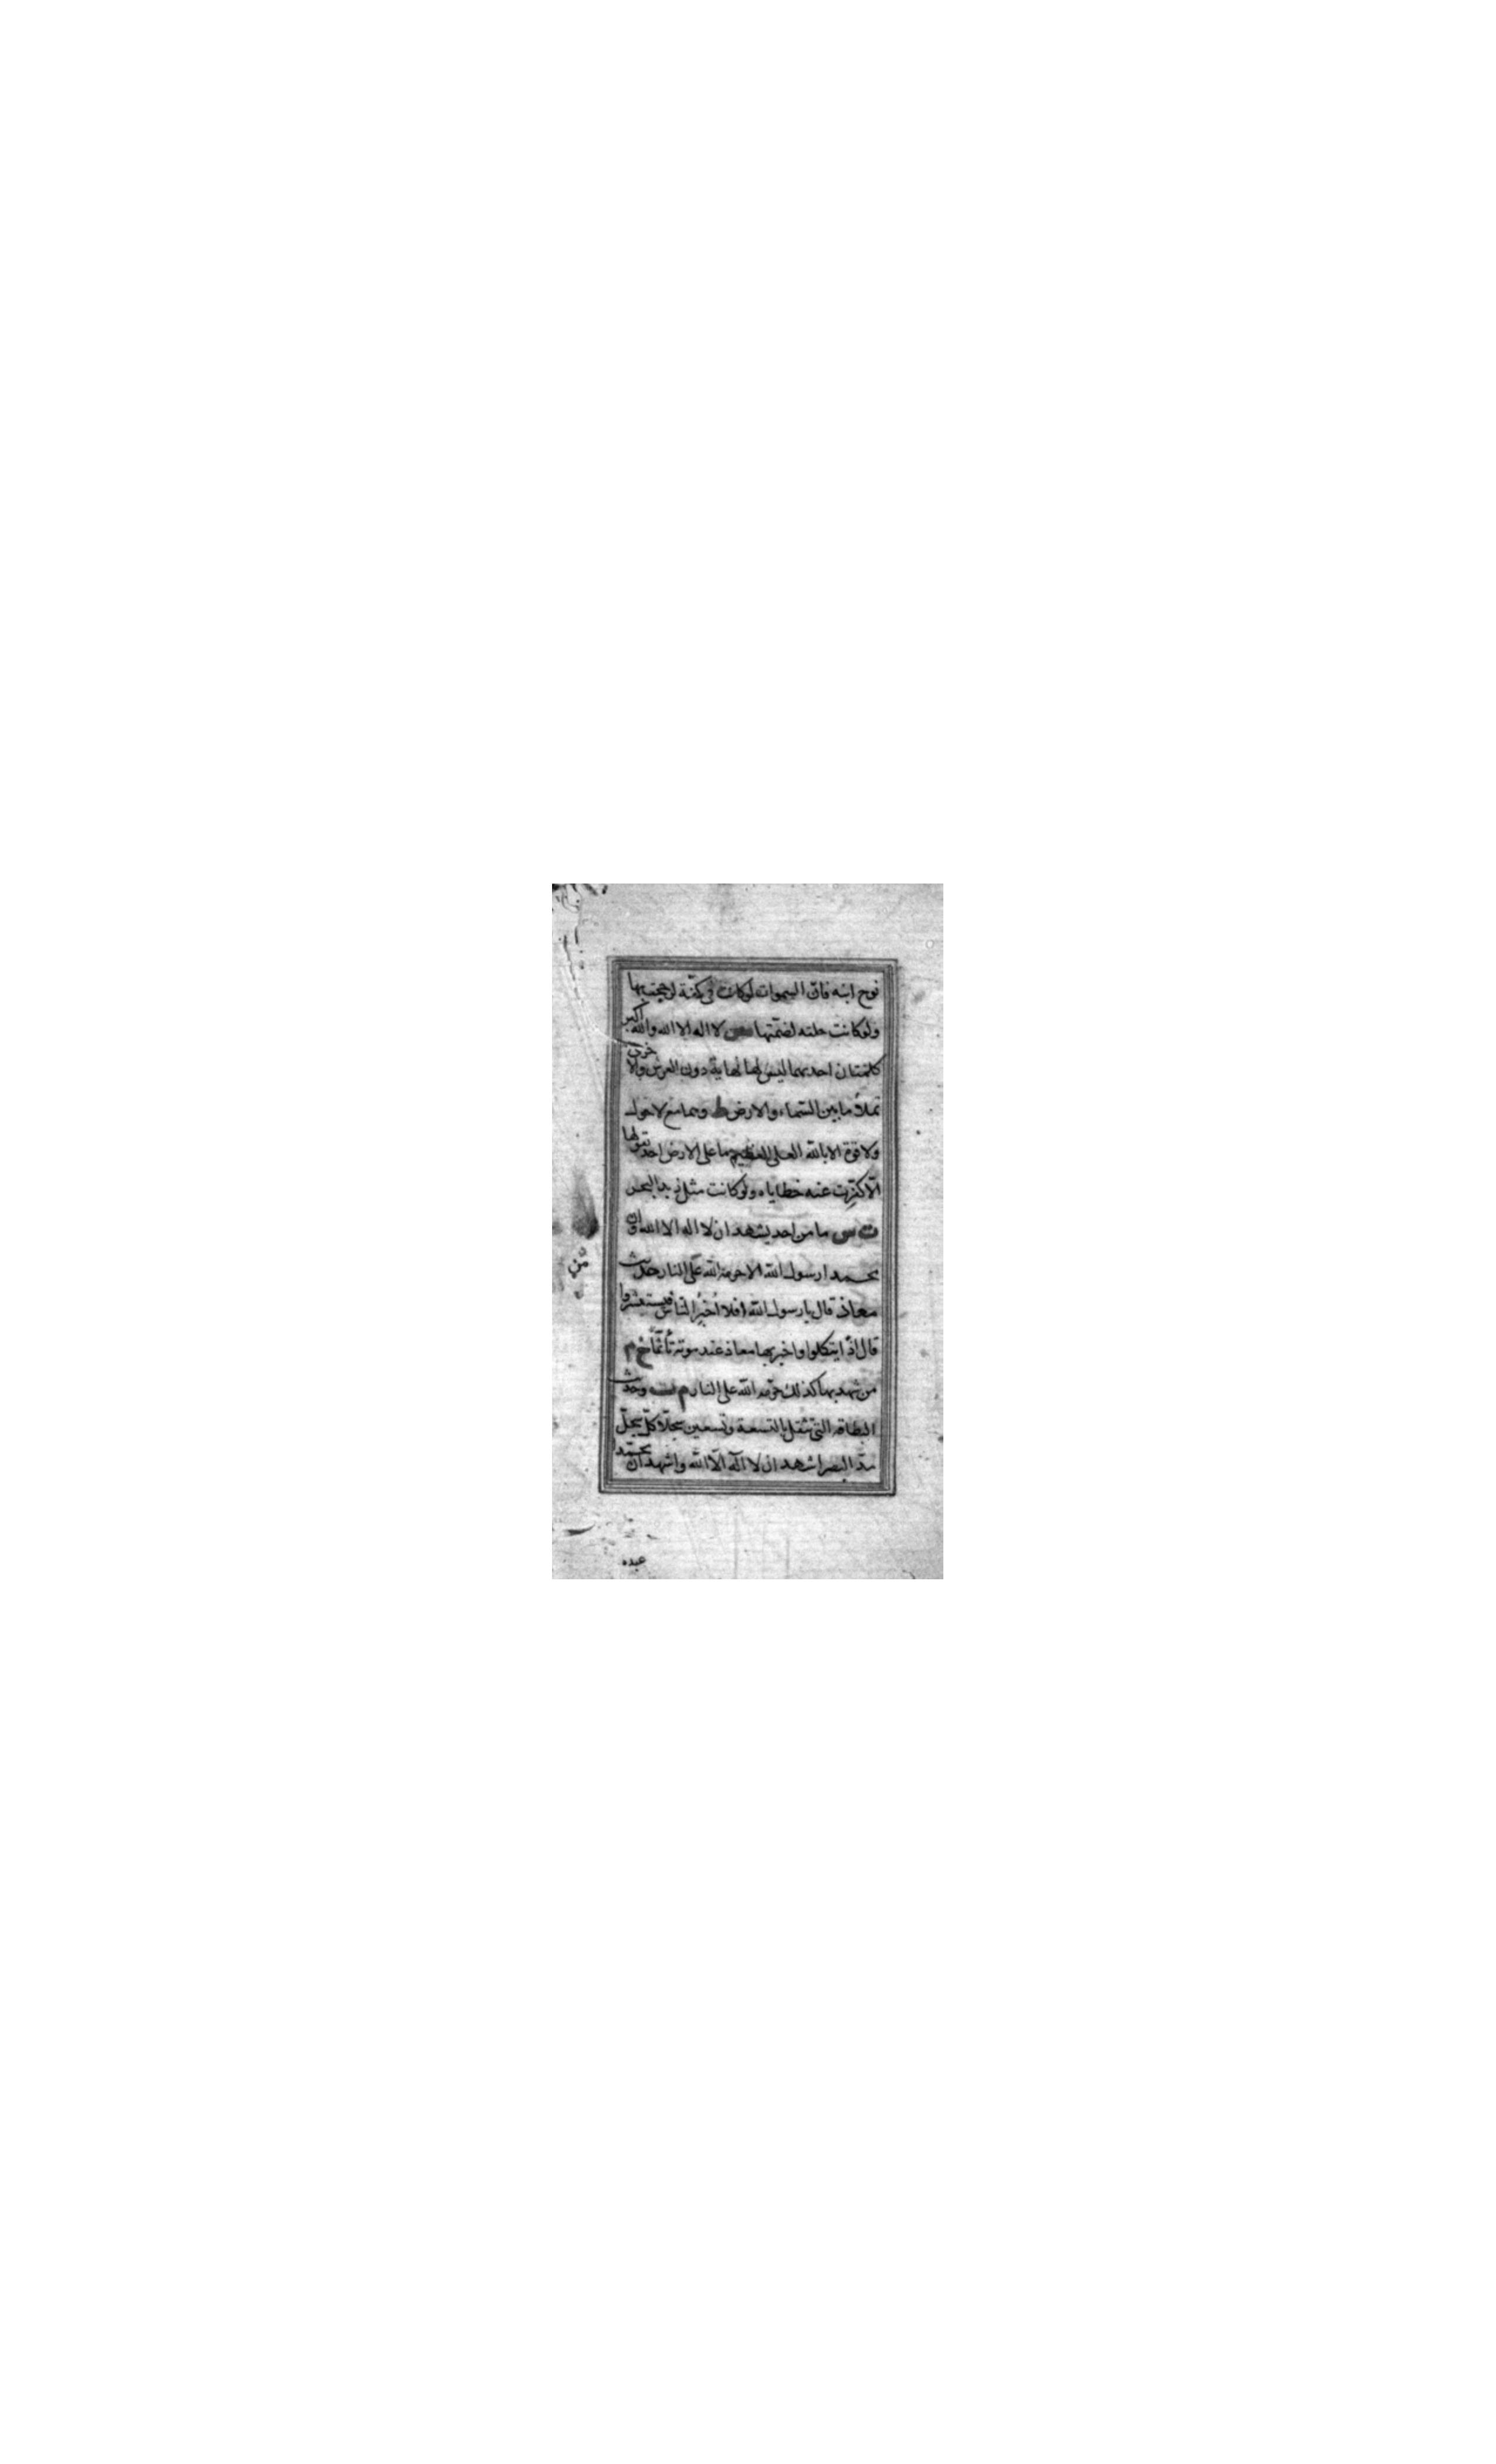 نوح ابنه فان السموات لو كانت فى كفة لرجحت بها
ولو كانت حلقه لضمتها مص لا اله الا الله والله اكبر
كلمتان احديهما ليس لها نهاية دون العرش والاخرى
تملأ ما بين السماء والارض ط وهما مع لا حول
ولا قوة الا بالله العلى العظيم ما على الارض احد يقولها
الّا كفّرت عنه خطاياه ولو كانت مثل زبد البحر
ت س ما من احد يشهد ان لا اله الا الله وان
محمدا رسول الله الا حرمه الله على النار حديث
معاذ قال يا رسول الله افلا أخبر الناس فيستبشروا
قال اذًا يتكلوا واخبر بها معاذ عند موته تأثّمًا خ م
من شهد بها كذلك حرّمه الله على النار م ت وحديث
البطاقة التى تثقل بالتسعة وتسعين سجلّا كلّ سجلّ
مدّ البصر اشهد ان لا اله الّا الله واشهد ان محمّدا
عبده